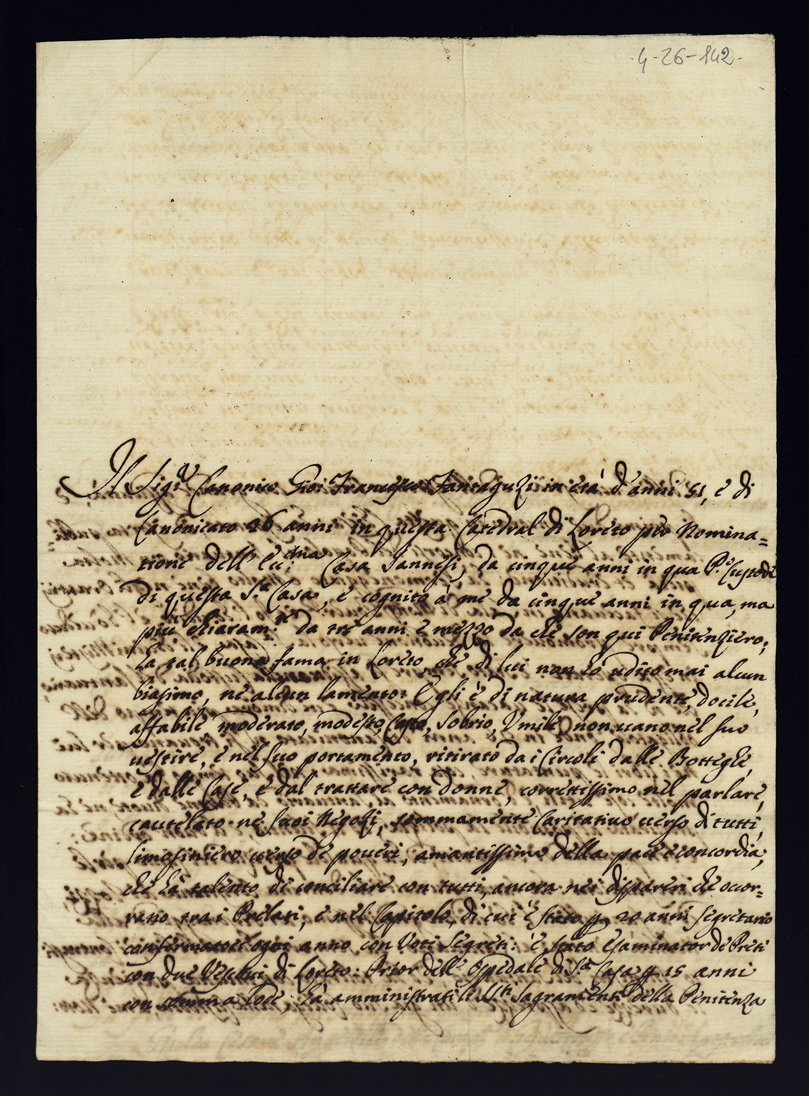 ·4-26-142·
Il Sigr Canonico Gio: Francesco Fantaguzi in età d'anni 51, è di
Canonicato 26 anni in questa Catedral di Loreto per Nomina=
tione dell'Ecc:ma Casa Iannesi, da cinque anni in qua Po: Custode
di questa Sta Casa, e cognito à me da cinque anni in qua, ma
più chiaramte da tre anni e mezzo da che son qui Penitenziero;
ha tal buona fama in Loreto che di lui non ho udito mai alcun
biasimo, nè alcun lamento: Egli è di natura prudente, docile,
affabile, moderato, modesto, sobrio, Umile, non vano nel suo
vestire, e nel suo portamento, ritirato dai Circoli dalle Botteghe,
e dalle Case, e dal trattare con donne, correttissimo nel parlare,
cautelato ne suoi Negozi, sommamente Caritativo verso di tutti,
limosiniero verso de poveri, amantissimo della pace e concordia,
che hà talento di conciliare con tutti, ancora nei dispareri che occor-
rano tra i Prelati, e nel Capitolo, di cui è stato p 20 anni Segretario
confermato ogni anno con Voti Segreti: è stato Esaminator de Preti
con due Vescovi di Loreto: Prior dell'Ospedale di Sta Casa p 15 anni
con somma lode: hà amministrati li SSti Sagramenti della Penitenza